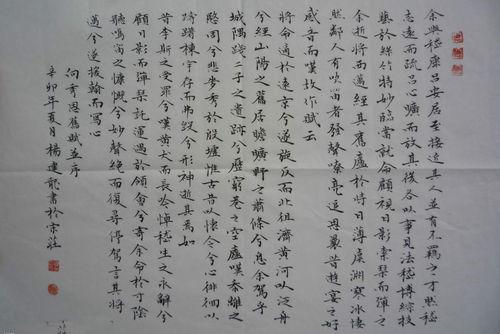 余與嵇康呂安居至接近其人並有不羈之才然嵇
志遠而疏呂心曠而放其後各以事見法嵇博綜技
藝於絲竹特妙臨當就命顧視日影索琴而彈之
余逝將西邁經其舊廬於時日薄虞淵寒冰悽
然鄰人有吹笛者發聲嘹亮追思曩昔遊宴之好
感音而嘆故作賦云
將命適於遠京兮遂旋反而北徂濟黃河以泛舟
兮經山陽之舊居瞻曠野之蕭條兮息余駕乎
城隅踐二子之遺跡兮歷窮巷之空廬嘆黍離之
愍周兮悲麥秀於殷墟惟古昔以懷今兮心徘徊以
躊躇棟宇存而弗毀兮形神逝其焉如
昔李斯之受罪兮嘆黃犬而長吟悼嵇生之永辭兮
顧日影而彈琴託運遇於領會兮寄余命於寸陰
聽鳴笛之慷慨兮妙聲絕而復尋停駕言其將
邁兮遂援翰而寫心
向秀思舊賦並序
辛卯年夏月楊建龍書於宗莊